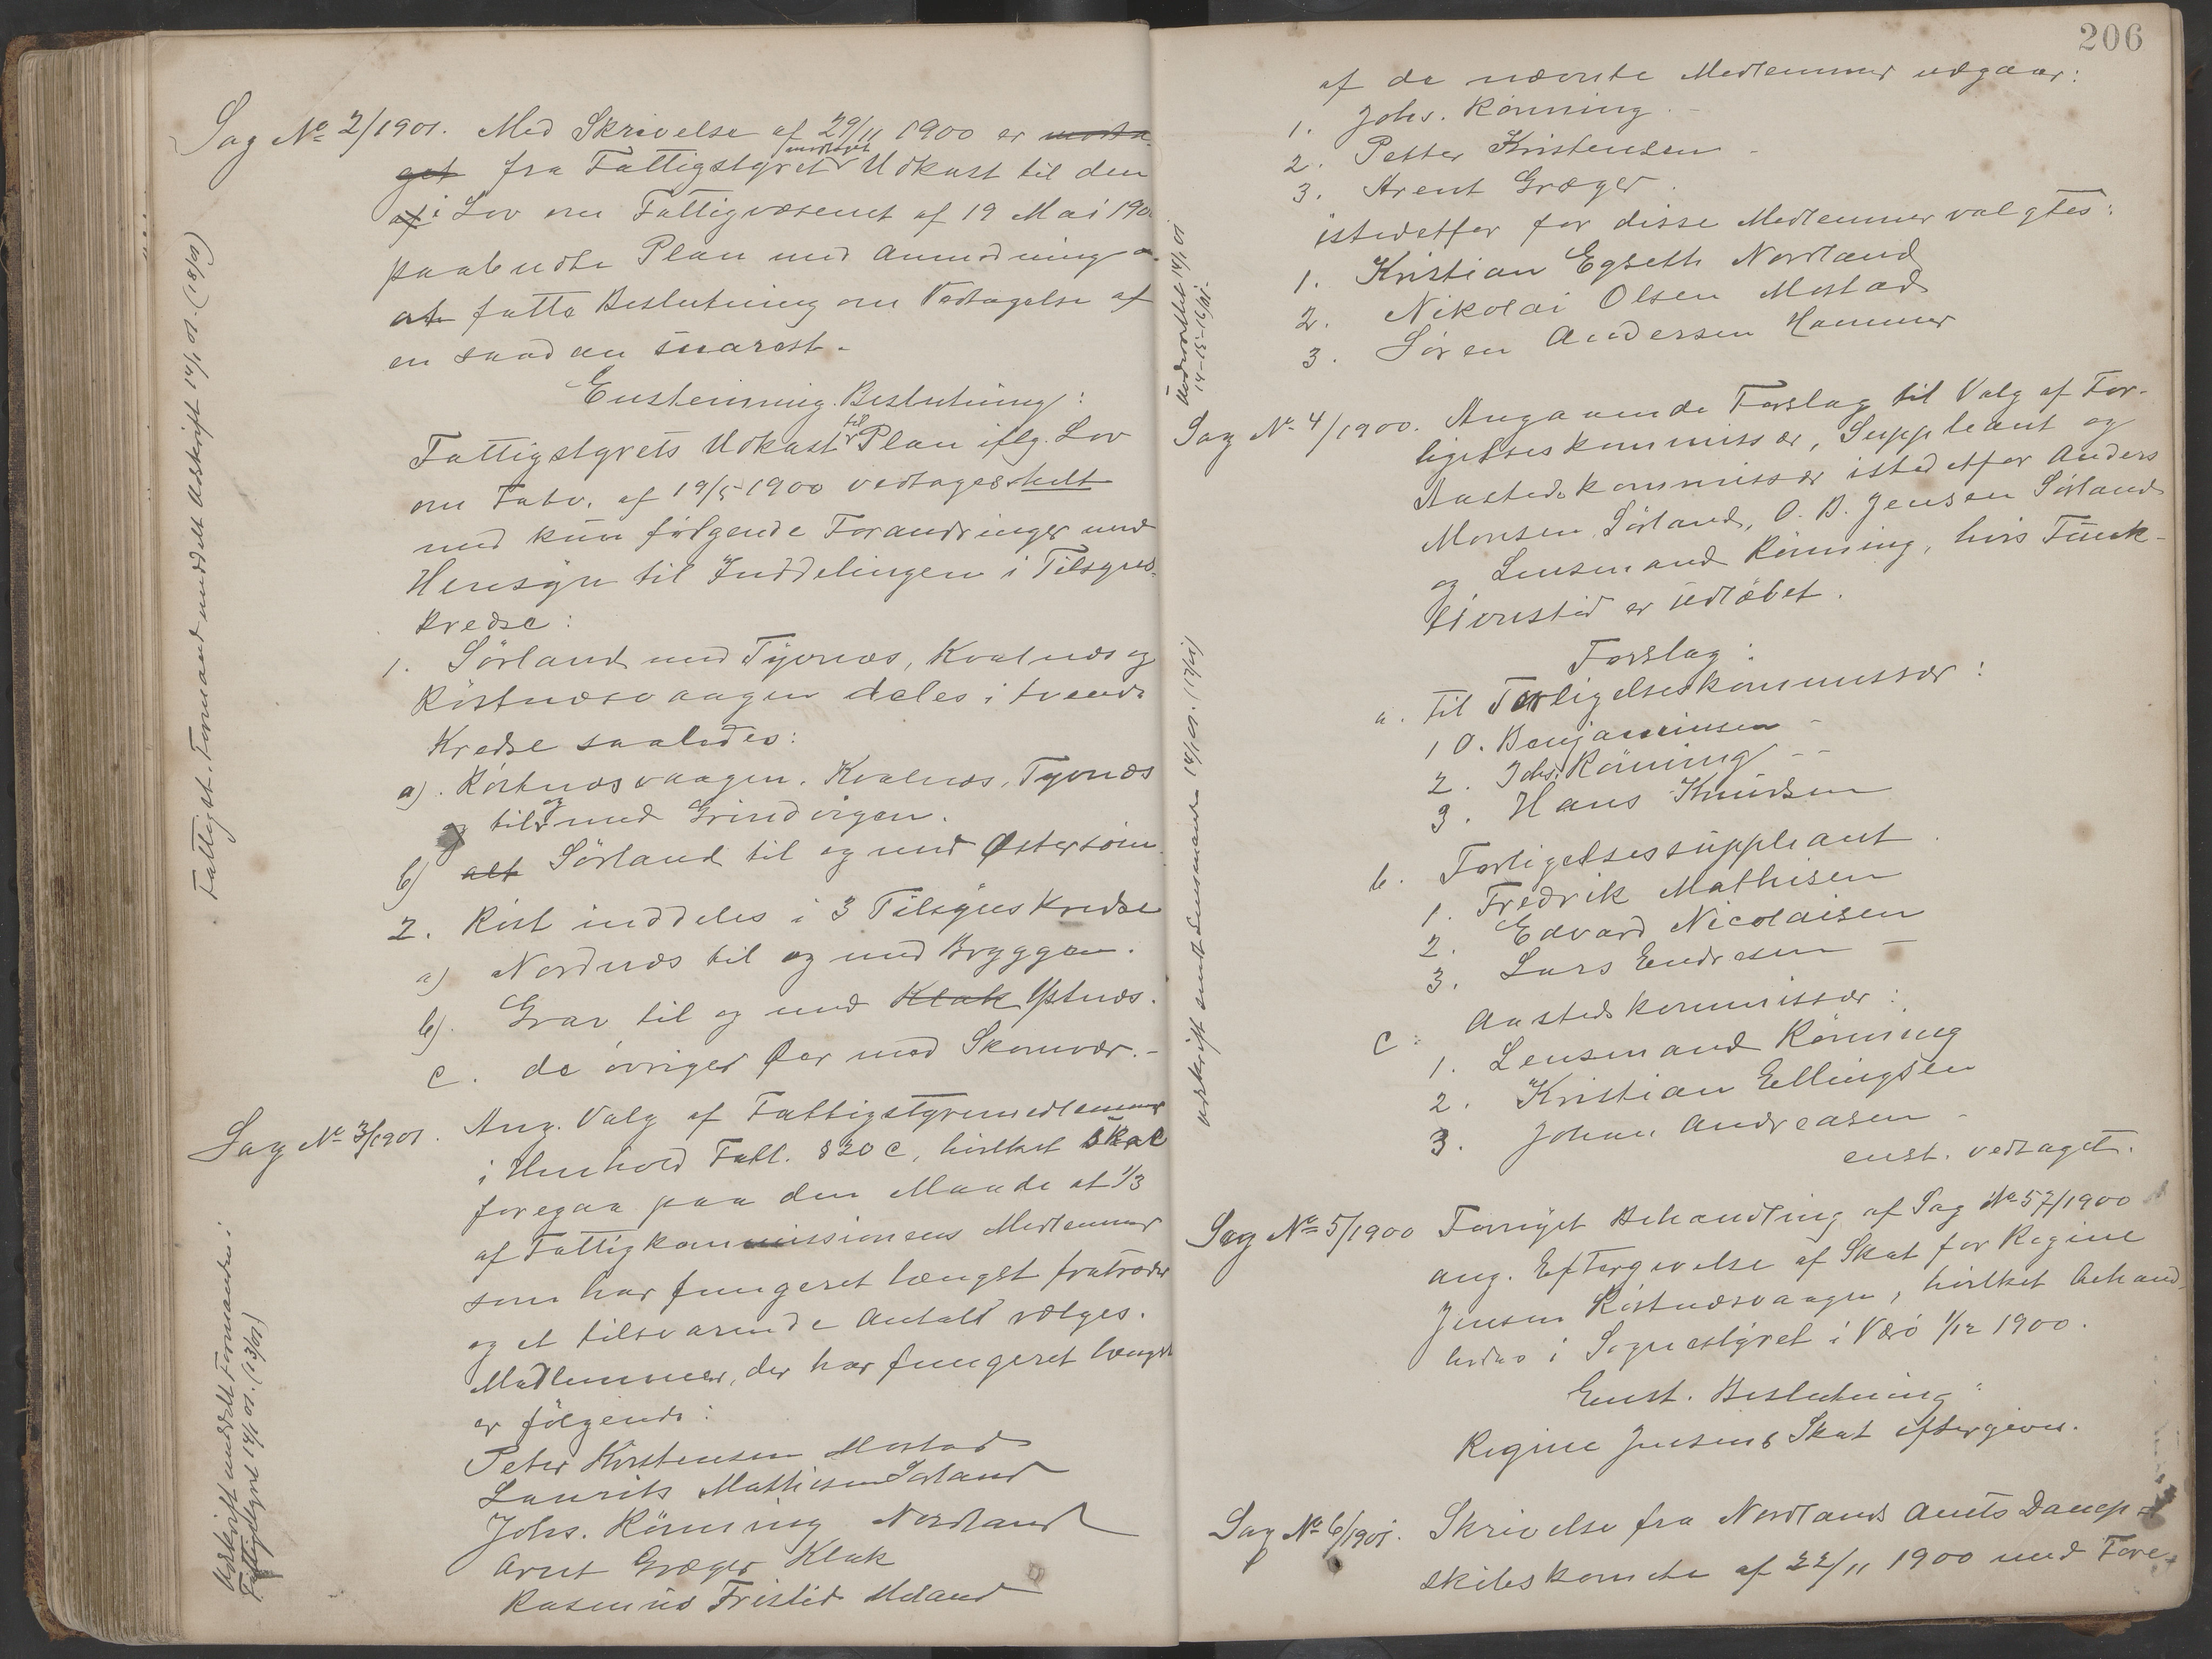 Sag No 2/1901. Med Skrivelse af 29/11 1900 er modta-
get fra Fattigstyret modtaget Udkast til den
af i Lov om Fattigvæsenet af 19 Mai 190
paabudte Plan med Anmodning o
at fatte Beslutning om Vedtagelse af
en saadan snarest.
Enstemmig Beslutning:
Fattigstyrets Udkast til Plan iflg. Lov
om Fatv. af 19/5 1900 vedtages helt
med kun følgende Forandringer med
Hensyn til Inddelingen i Tilsyns-
kredse:
1. Sørland med Tyvnæs, Kvalnæs og
Røstnæsvaagen deles i tvende
Kredse saaledes:
a). Røstnæsvaagen, Kvalnæs, Tyvnæs
og til og med Grindvigen.
b) alt Sørland til og med Østersøin.
2. Røst inddeles i 3 Tilsyns kredse
a) Nordnæs til og med Bryggen.
b). Grav til og med Klak Ystnæs.
c. de øvriger Øer med Skomvær.-
Sag No 3/1901. Ang. Valg af Fattigstyremedlemmer
i Henhold Fatl. § 20 c, hvilket skal
foregaa paa den Maade at 1/3
af Fattigkommissionens Medlemmer
som har fungeret længst fratræder
og et tilsvarende Antall vælges.
Medlemmer, der har fungeret længst
er følgende:
Peter Kristensen Mostad
Laurits Mathisen Sørland
Johs. Rønning Nordland
Arnt Græger Klak
Rasmus Fristid Meland
Fattigst. Formand meddelt Udskrift 14/1 01. (18/01)
Udskrift meddelt Formanden i
Fattigstyret 14/1 01. (13/01)
206
af de nævnte Medlemmer udgaar:
1. Johs. Rønning.-
2. Petter Kristensen -
3. Arent Græger.
istedetfor for disse Medlemmer valgtes:
1. Kristian Egseth Nordland
2. Nikolai Olsen Mostad
3. Søren Andersen Hammer
Underrettet 14/1 01
14-15-16/01-
Sag No 4/1900. Angaaende Forslag til Valg af For-
ligelseskommissær, Suppleant og
Aastedskommissær istedetfor Anders
Monsen Sørland, O. B. Jensen Sørland
og Lensmand Rønning, hvis Funk-
tionstid er udløbet.
Forslag:
a. til Forligelseskommissær:
1 O. Benjaminsen -
2. Johs. Rønning --
3. Hans Knudsen
b. Forligelsessuppleant.
1. Fredrik Mathisen
2. Edvard Nicolaisen
3. Lars Endresen -
c: Aastedskommissær:
1. Lensmand Rønning
2. Kristian Ellingsen
3. Johan Andreasen -
enst. vedtaget.
Udskrift sendt Lensmanden 14/1 01. (17/01)
Sag No 5/1900 Fornyet Behandling af Sag No 57/1900
ang. Eftergivelse af Skat for Regine
Jensen Røstnæsvaagen, hvilket behand-
ledes i Sognestyret i Værø 1/12 1900.
Enst. Beslutning:
Regine Jensens Skat eftergives.
Sag No 6/1901. Skrivelse fra Nordlands Amts Damp-
skibskomite af 22/11 1900 med Fore-